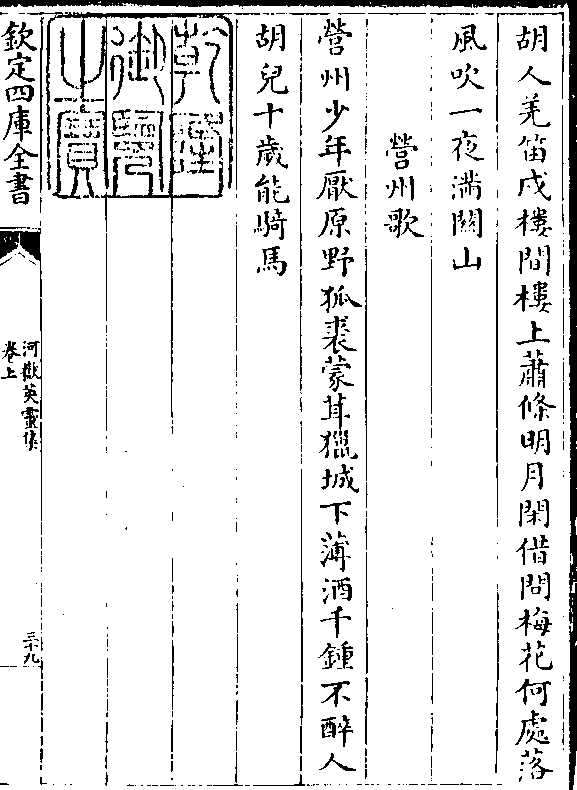 胡人羌笛戍樓間樓上蕭條明月閑借問梅花何處落
風吹一夜滿關山
營州歌
營州少年厭原野狐裘蒙茸獵城下薄酒千鍾不醉人
胡兒十歲能騎馬
乾隆御覽之寶
欽定四庫全書
河嶽英靈集
卷上
三十九